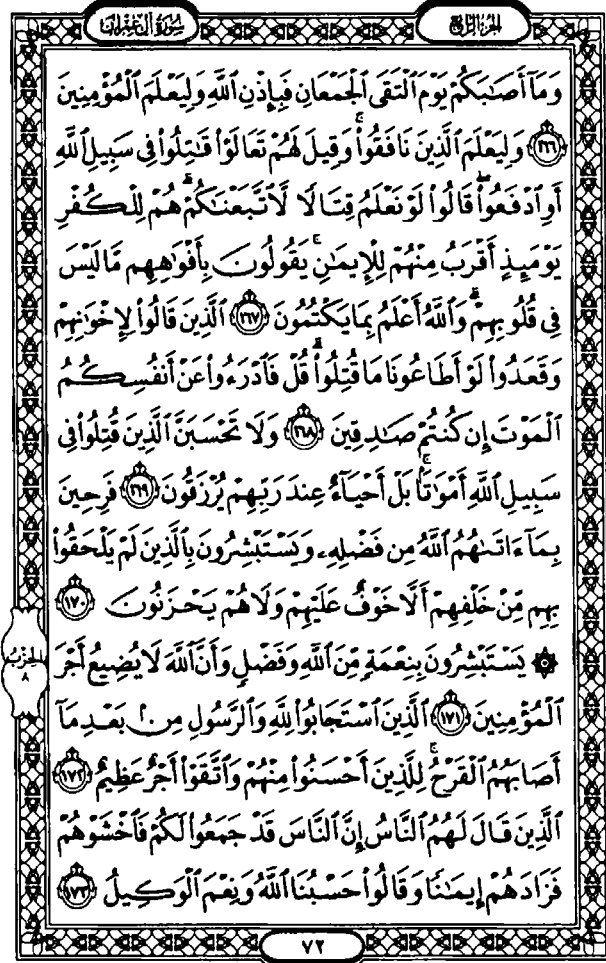 سُورَةُ آلِ عِمْرَان
الجزء الرابع
وَمَآ أَصَٰبَكُمْ يَوْمَ ٱلْتَقَى ٱلْجَمْعَانِ فَبِإِذْنِ ٱللَّهِ وَلِيَعْلَمَ ٱلْمُؤْمِنِينَ
١٦٦ وَلِيَعْلَمَ ٱلَّذِينَ نَافَقُوا۟ ۚ وَقِيلَ لَهُمْ تَعَالَوْا۟ قَٰتِلُوا۟ فِى سَبِيلِ ٱللَّهِ
أَوِ ٱدْفَعُوا۟ ۖ قَالُوا۟ لَوْ نَعْلَمُ قِتَالًا لَّٱتَّبَعْنَٰكُمْ ۗ هُمْ لِلْكُفْرِ
يَوْمَئِذٍ أَقْرَبُ مِنْهُمْ لِلْإِيمَٰنِ ۚ يَقُولُونَ بِأَفْوَٰهِهِم مَّا لَيْسَ
فِى قُلُوبِهِمْ ۗ وَٱللَّهُ أَعْلَمُ بِمَا يَكْتُمُونَ ١٦٧ ٱلَّذِينَ قَالُوا۟ لِإِخْوَٰنِهِمْ
وَقَعَدُوا۟ لَوْ أَطَاعُونَا مَا قُتِلُوا۟ ۗ قُلْ فَٱدْرَءُوا۟ عَنْ أَنفُسِكُمُ
ٱلْمَوْتَ إِن كُنتُمْ صَٰدِقِينَ ١٦٨ وَلَا تَحْسَبَنَّ ٱلَّذِينَ قُتِلُوا۟ فِى
سَبِيلِ ٱللَّهِ أَمْوَٰتًۢا ۚ بَلْ أَحْيَآءٌ عِندَ رَبِّهِمْ يُرْزَقُونَ ١٦٩ فَرِحِينَ
بِمَآ ءَاتَىٰهُمُ ٱللَّهُ مِن فَضْلِهِۦ وَيَسْتَبْشِرُونَ بِٱلَّذِينَ لَمْ يَلْحَقُوا۟
بِهِم مِّنْ خَلْفِهِمْ أَلَّا خَوْفٌ عَلَيْهِمْ وَلَا هُمْ يَحْزَنُونَ ١٧٠
۞ يَسْتَبْشِرُونَ بِنِعْمَةٍ مِّنَ ٱللَّهِ وَفَضْلٍ وَأَنَّ ٱللَّهَ لَا يُضِيعُ أَجْرَ
الحزب
٨
ٱلْمُؤْمِنِينَ ١٧١ ٱلَّذِينَ ٱسْتَجَابُوا۟ لِلَّهِ وَٱلرَّسُولِ مِنۢ بَعْدِ مَآ
أَصَابَهُمُ ٱلْقَرْحُ ۚ لِلَّذِينَ أَحْسَنُوا۟ مِنْهُمْ وَٱتَّقَوْا۟ أَجْرٌ عَظِيمٌ ١٧٢
ٱلَّذِينَ قَالَ لَهُمُ ٱلنَّاسُ إِنَّ ٱلنَّاسَ قَدْ جَمَعُوا۟ لَكُمْ فَٱخْشَوْهُمْ
فَزَادَهُمْ إِيمَٰنًا وَقَالُوا۟ حَسْبُنَا ٱللَّهُ وَنِعْمَ ٱلْوَكِيلُ ١٧٣
٧٢